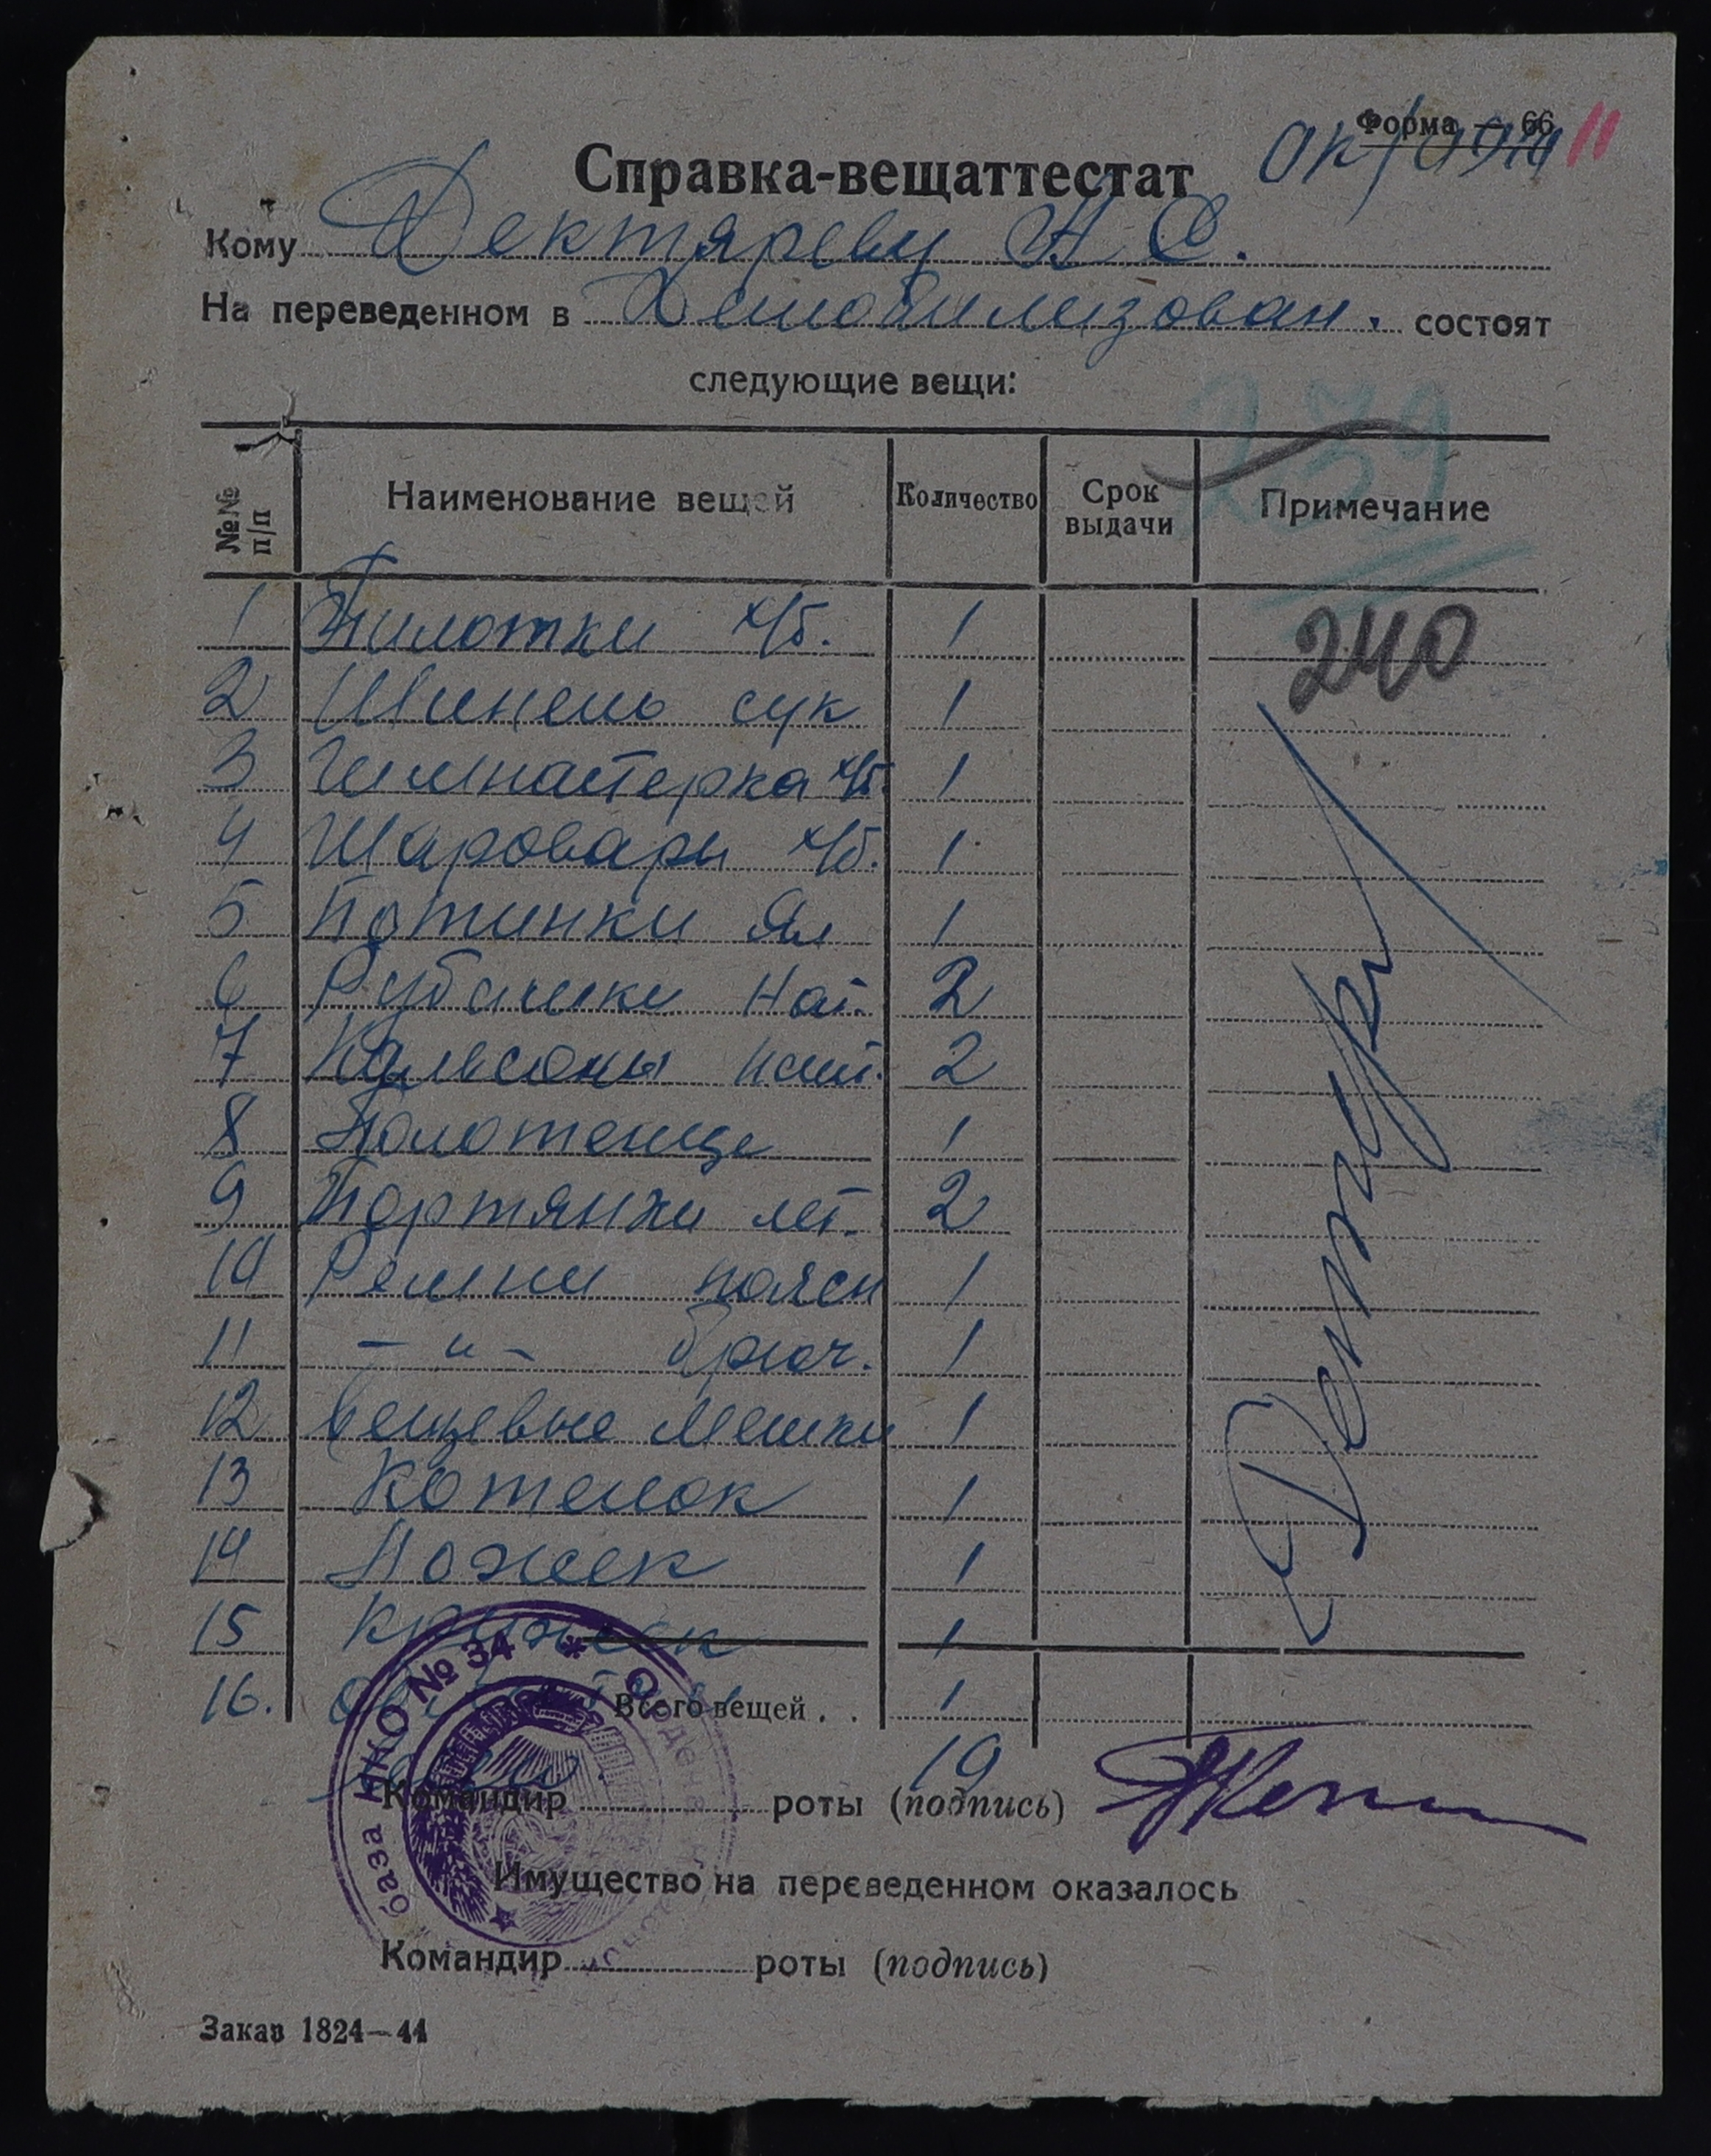 Форма — 66
11
Справка-вещаттестат
Кому Дектяреву Н С.
На переведенном в Демобилизован. состоят
следующие вещи:
239
№№ п/п Наименование вещей Количество Срок выдачи Примечание
240
1 Пилотки х/б. 1
2 Шинель сук 1
3 Гимнастерка х/б. 1
4 Шаровары х/б. 1
5 Ботинки Ял 1
6 Рубашки нат. 2
7 Кальсоны нат. 2
8 Полотенце 1
9 Портянки лет. 2
10 Ремни поясн 1
11 — " — брюч. 1
12 Вещевые мешки 1
13 Котелок 1
14 Ножек 1
15 Кружек 1
16. Всего вещей . . 1
19
Командир роты (подпись)
Имущество на переведенном оказалось
Командир роты (подпись)
база НКО № 34 * Ордена
Заказ 1824—44